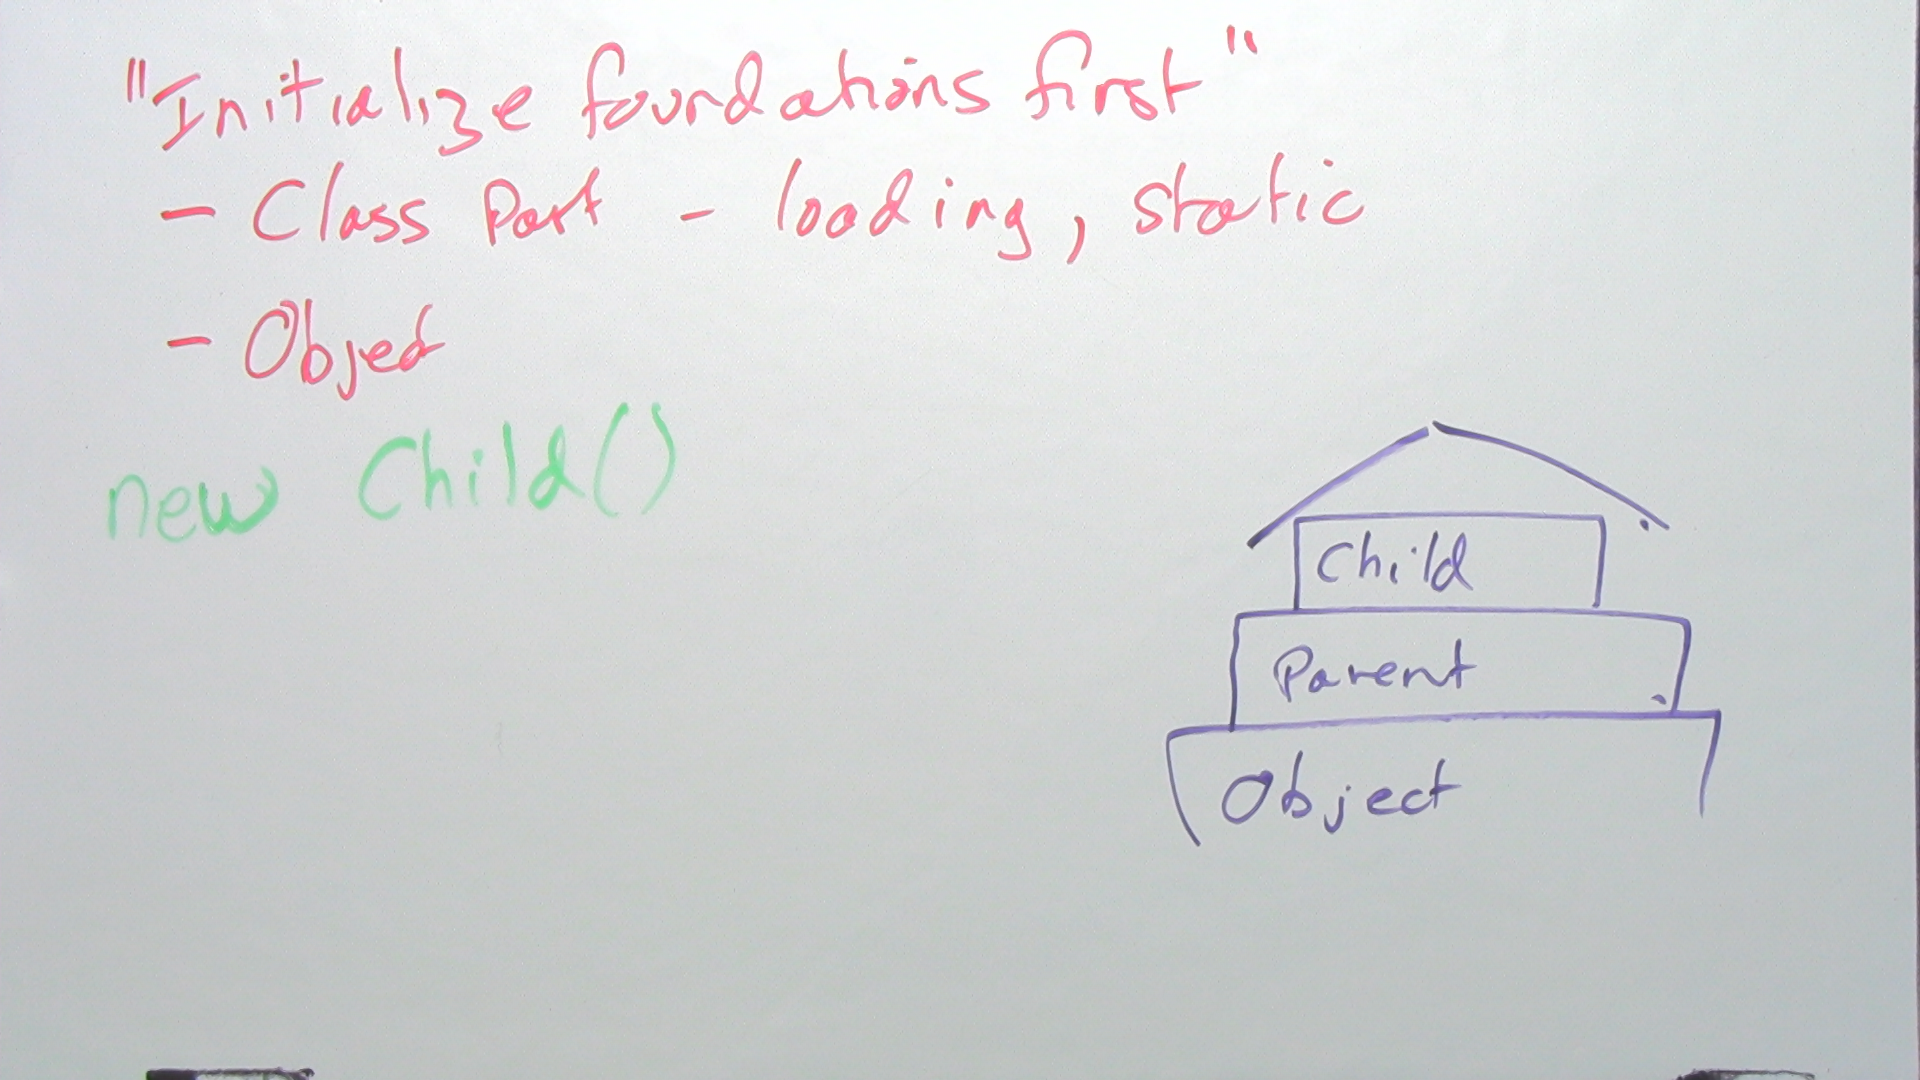 "Initialize foundations first"
- Class Part - loading, static
- Object
new Child()
Child
Parent
Object